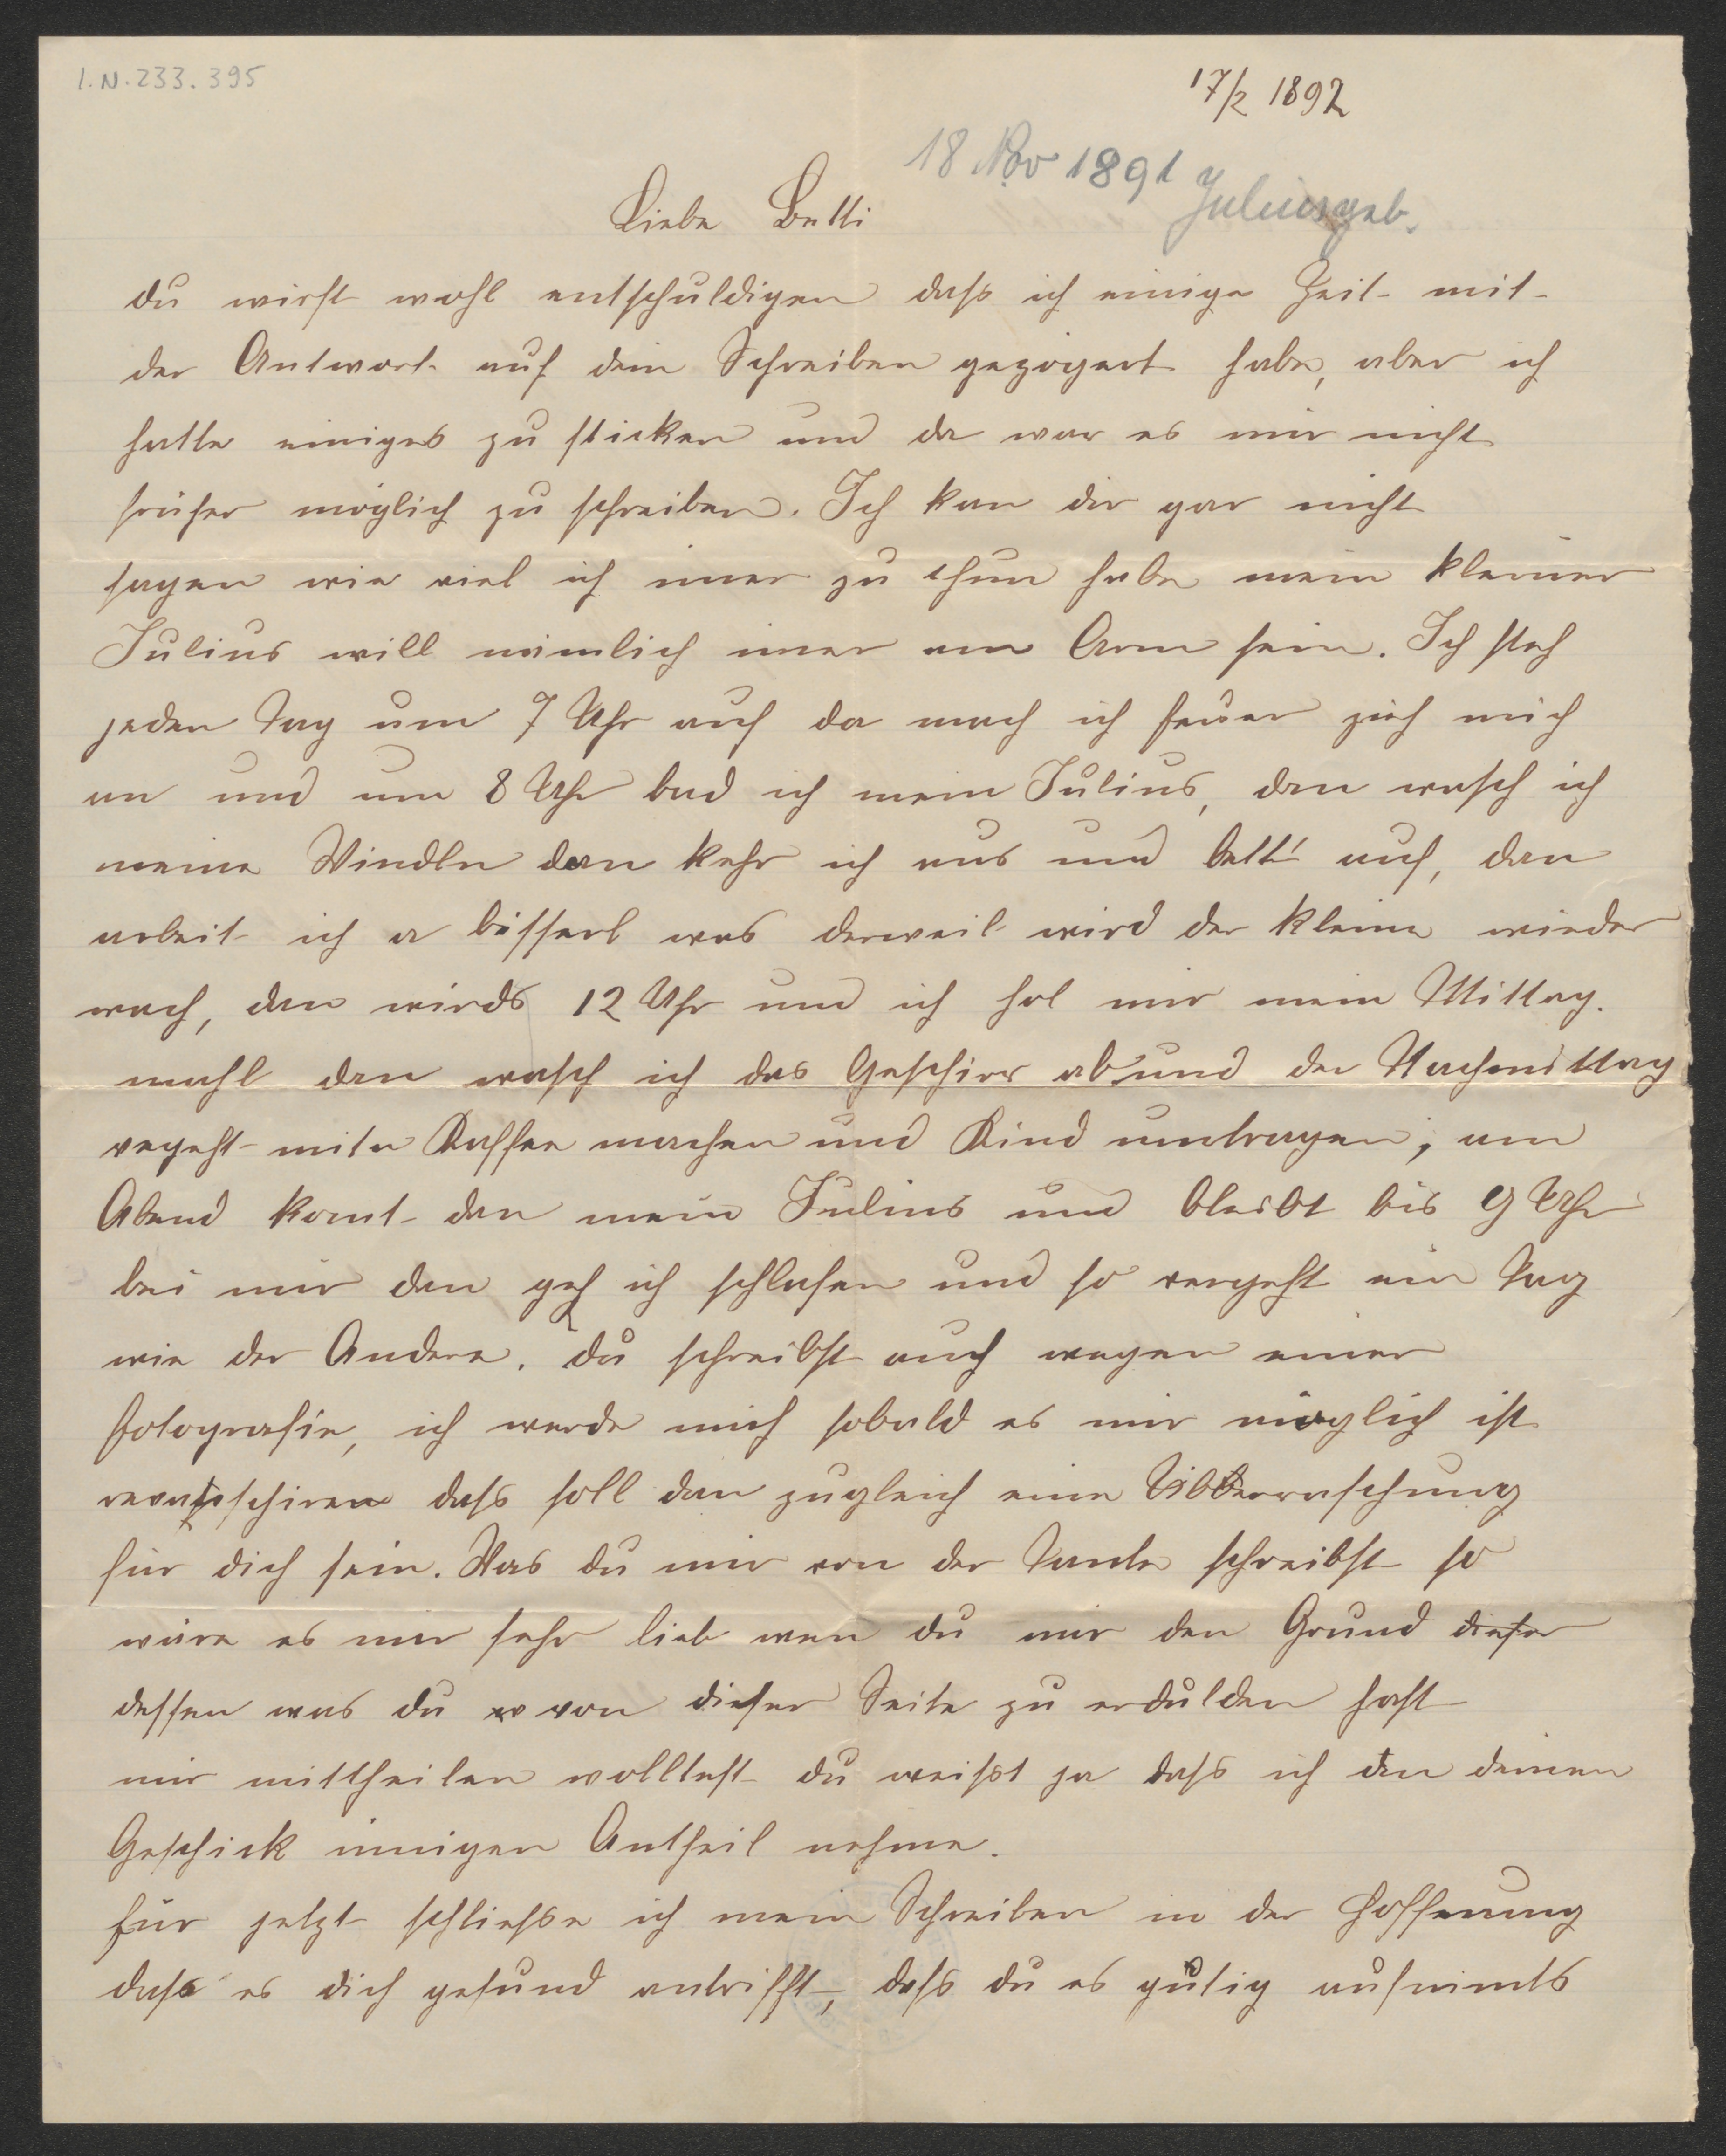 I.N. 233.395
17/2 1892
18 Nov 1891
Julius geb.
Liebe Betti
du wirst wohl entschuldigen dass ich einige Zeit mit
der Antwort auf dein Schreiben gezögert habe, aber ich
hatte einiges zu sticken und da war es mir nicht
früher möglich zu schreiben. Ich kan dir gar nicht
sagen wie viel ich imer zu thun habe mein kleiner
Julius will nämlich imer am Arm sein. Ich steh
jeden Tag um 7 Uhr auf da mach ich feuer zieh mich
an und um 8 Uhr bad ich mein Julius, dan wasch ich
meine Windln dan kehr ich aus und bett' auf, dan
arbeit ich a bisserl was derweil wird der kleine wieder
wach, dan wirds 12 Uhr und ich hol mir mein Mittag-
mahl dan wasch ich das Geschirr ab und der Nachmittag
vegeht mitn Kaffee machen und Kind umtragen, am
Abend komt dan mein Julius und bleibt bis 9 Uhr
bei mir dan geh ich schlafen und so vergeht ein Tag
wie der Andere. du schreibst auch wegen einer
fotografie, ich werde mich sobald es mir möglich ist
revanschiren dass soll dan zugleich eine Überraschung
für dich sein. Was du mir von der Tante schreibst so
wäre es mir sehr lieb wen du mir den Grund dieser
dessen was du von dieser Seite zu erdulden hast
mir mittheilen wolltest du weißt ja dass ich an deinen
Geschick innigen Antheil nehme.
für jetzt schließe ich mein Schreiben in der Hoffnung
dass es dich gesund antrifft, dass du es gütig aufnimts